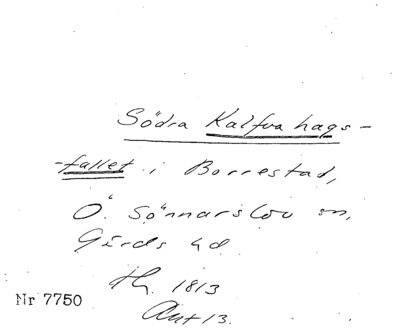 Södra Kalfvahags-
-fallet i Borrestad,
Ö. Sönnarslöv sn,
Gärds hd.
Nr 7750
1813
Akt 13.